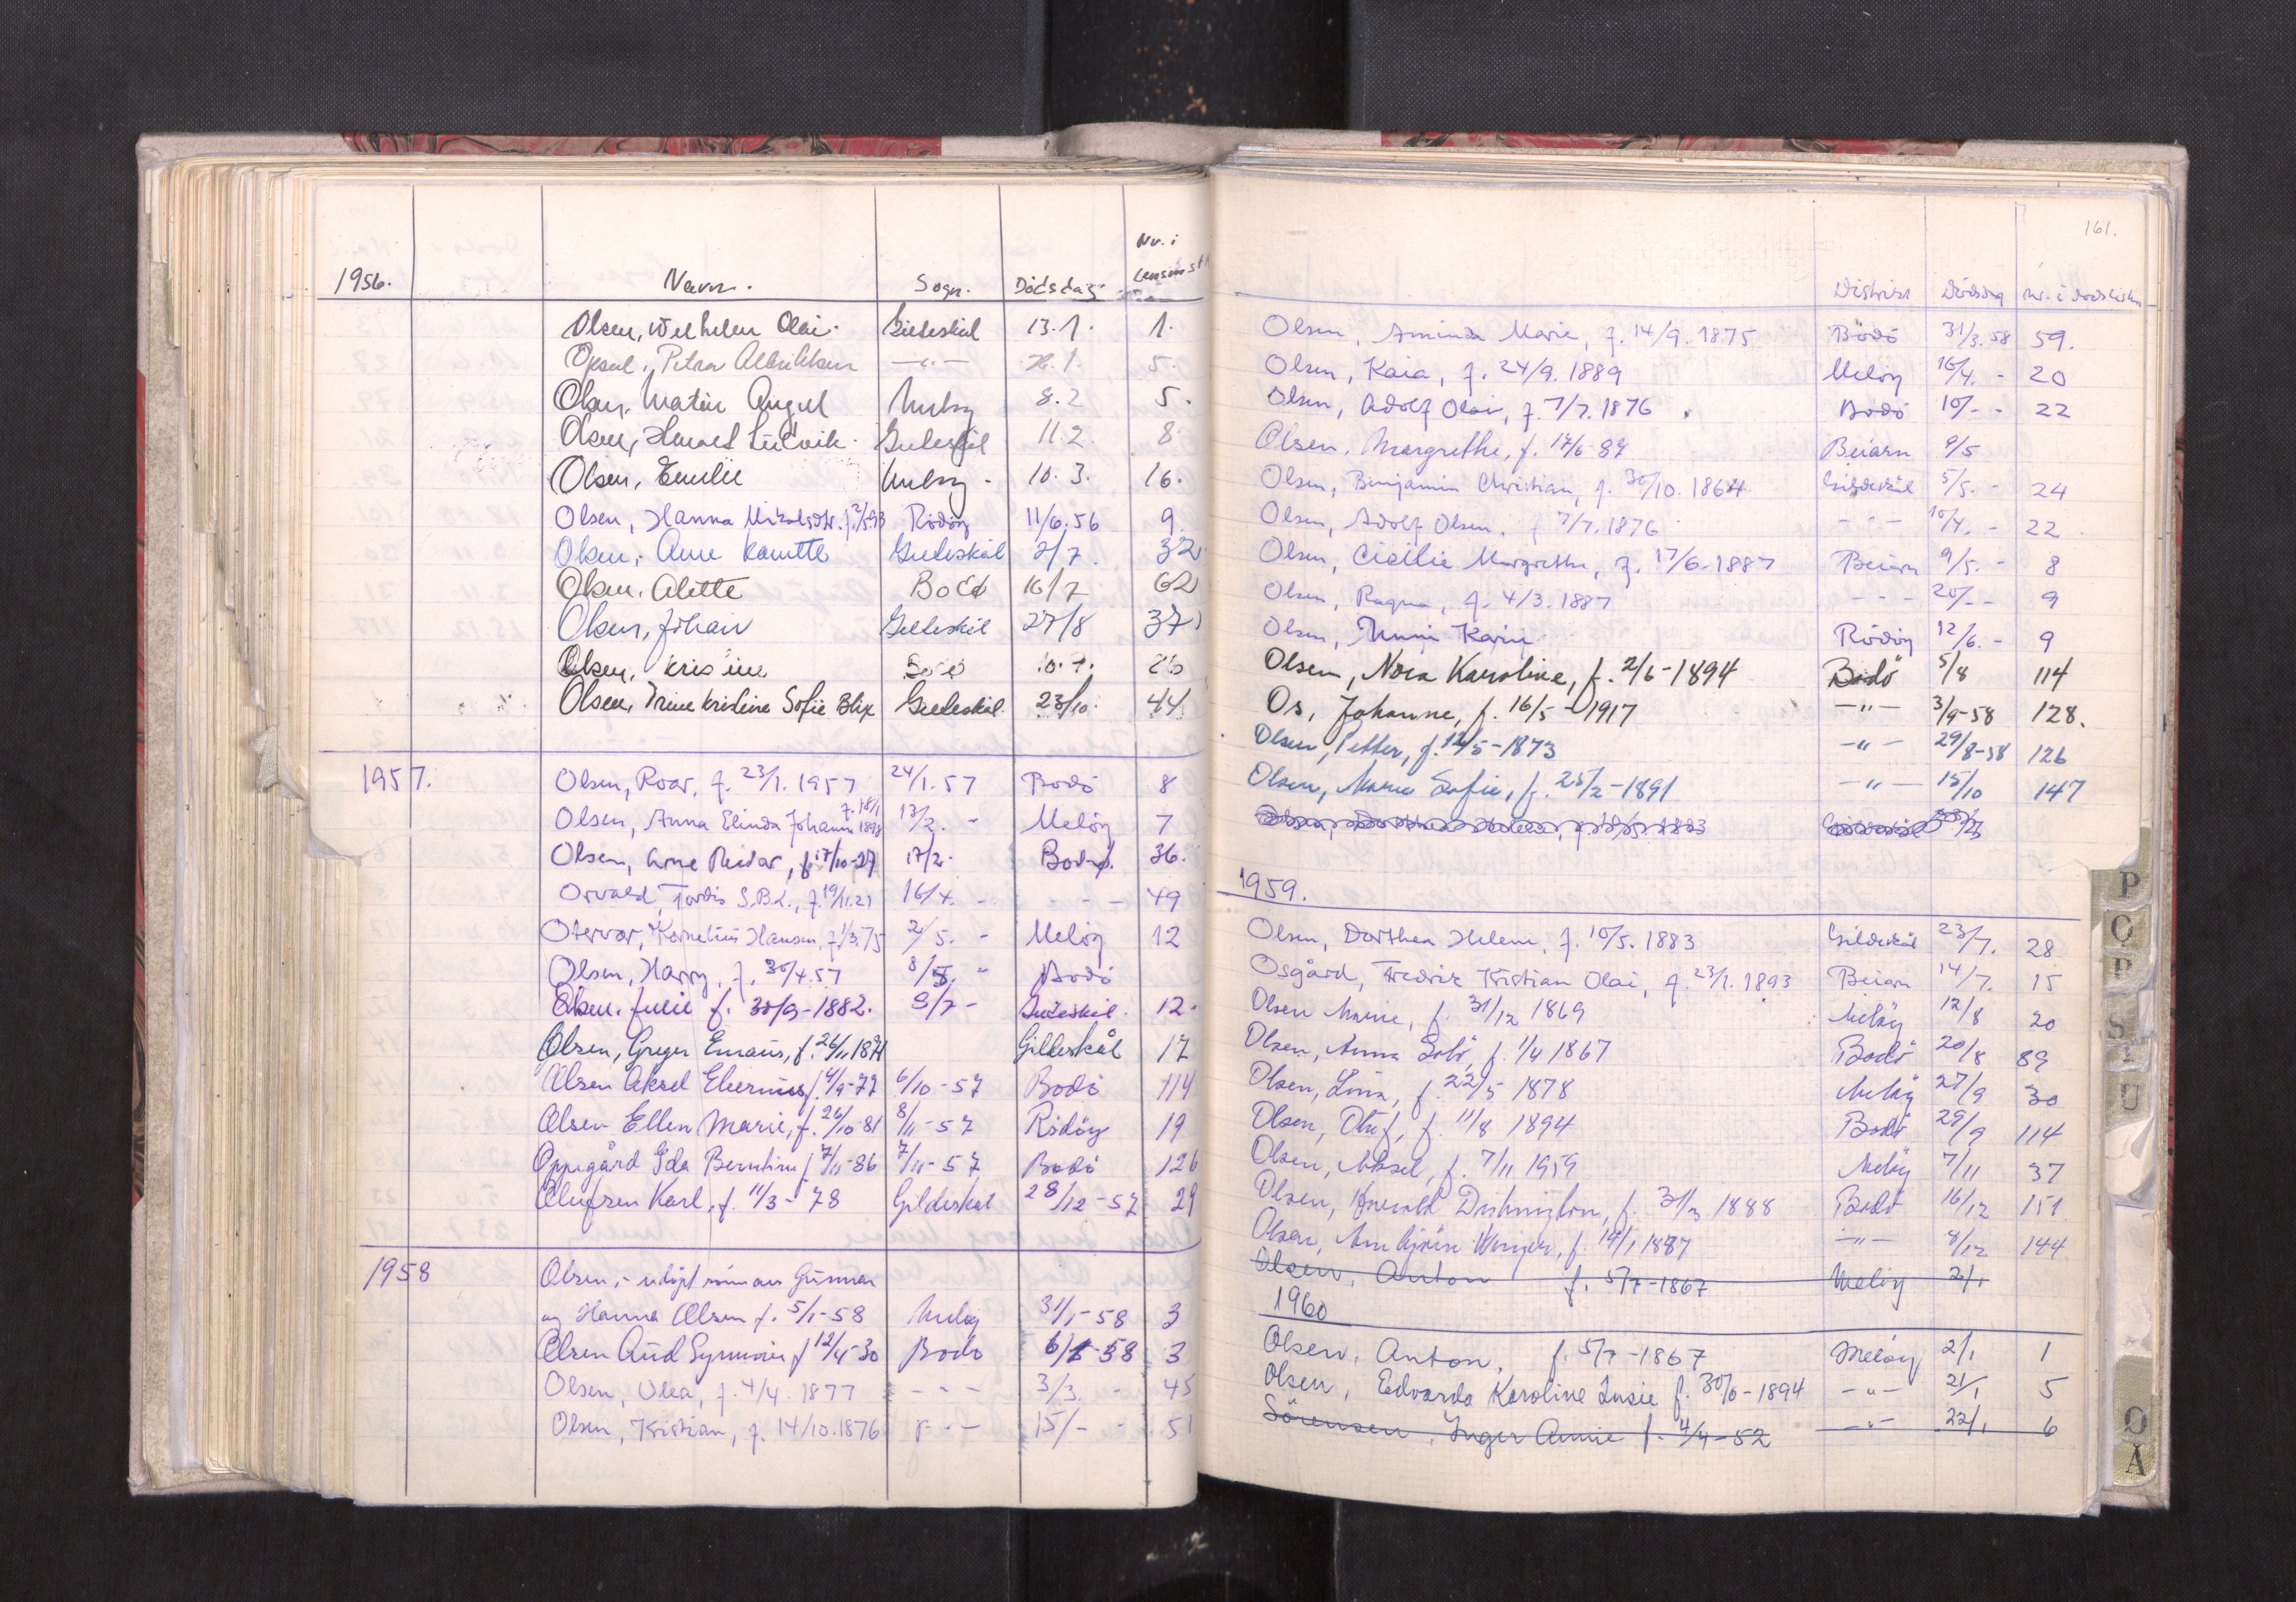 Nr. i
1956. Navn. Sogn. Dödsdag. Lensm.
Olsen, Wilhelm Olai. Gildeskål 13.1. 1.
Petra —"— 5.
Olsen, Martin Angel Meløy 8.2 5.
Olsen, Ludvik. Gildeskål 11.2. 8.
Olsen, Emilie Meløy - 10.3. 16.
Olsen, Hanna Rödöy 11/6.56 9.
Olsen, Anne Gildeskål 2/7. 32
Olsen. Alette Bodø 16/7 62
Olsen, Johan Gildeskål 27/8 37
Olsen, Kristine Bodø 26
Olsen, Trine Kristine Sofie Blix Gildeskål 23/10. 44.
1957. Olsen, Roar, f. 23/1. 1957 24/1.57 Bodö 8
Olsen, Anna Elinda Johanna f. 18/1 1898 13/2. - Melöy 7
Olsen, Arne Reidar, f. 17/10-27 17/2. Bodø. 36.
Osvald, Tordis S.B.L., f. 19/11.21 16/4. - - - - 49
Otervar, Kornelius Hansen, f. 1/3.75 2/5. - Melöy 12
Olsen, Harry, f. 30/4.57 8/5. " Bodö
Olsen. Julie f. 30/9-1882. 9/7 - Gildeskål. 12.
Olsen, Greger Emaus, f. 26/11 1871 Gildeskål 17
Olsen Aksel f. 4/9-77 6/10-57 Bodö 114
Olsen Ellen Marie, f. 26/10-81 8/11-57 Rödöy 19
Oppegård Ida Berntine f 7/11-86 7/11-57 Bodö 126
Olufsen Karl, f. 11/3-78 Gildeskål 28/12-57 29
1958 Olsen, - udöpt sönn av Gunnar
og Hanna Olsen f. 5/1-58 Melöy 31/1-58 3
Olsen Aud Synnöve f 12/4-30 Bodö 58 3
Olsen, Olea, f. 4/4. 1877 - - - 3/3. - 45
Olsen, Kristian, f. 14/10.1876 - - - 15/- - 51
161.
Distrikt Dödsdag nr. i dödslisten
Olsen, Aminda Marie, f. 14/9. 1875 Bödö 31/3.58 59.
Olsen, Kaia, f. 24/9. 1889 Meløy 16/4. - 20
Olsen, Adolf Olai, f. 7/7. 1876. Bodö 10/- - 22
Olsen, Margrethe, f. 17/6-87 Beiarn 9/5
Olsen, Benjamin Christian, f. 30/10. 1864 Gildeskål 5/5. - 24
Olsen, Adolf Olsen. f 7/7. 1876 - - - 10/4. - 22
Olsen, Cicilie Margrethe, f. 17/6-1887 Beiarn 9/5. - 8
Olsen, Ragna, f. 4/3. 1887 - - - 20/- - 9
Olsen, Karin Rödöy 12/6. - 9
Olsen, Nora Karoline, f. 2/6-1894 Bodö 5/8 114
Os, Johanne, f. 16/5-1917 —"— 3/9-58 128.
Olsen, Petter, f. 12/5-1873 —"— 29/8-58 126
Olsen, Marie Sofie, f. 25/2-1891 —"— 15/10 147
1959.
Olsen, Dorthea Helene, f. 10/5. 1883 Gildeskål 23/7. 28
Osgård, Fredrik Kristian Olai, f. 23/1. 1893 Beiarn 14/7. 15
Olsen Marie, f. 31/12 1869 Meløy 12/8 20
Olsen, Anna f. 1/4 1867 Bodö 20/8 89
Olsen, Lina, f. 22/5 1878 Meløy 27/9 30
Olsen, Oluf, f. 11/8 1894 Bodö 29/9 114
Olsen, Aksel, f. 7/11 1959 Meløy 7/11 37
Olsen, Harald f. 31/3 1888 Bodö 16/12 151
Olsen, f. 14/1 1887 —"— 8/12 144
Olsen, Anton f. 5/7-1867 Melöy 2/1
1960
Olsen, Anton, f. 5/7-1867 Melöy 2/1 1
Olsen, Edvarda Karoline Lusie f. 30/6-1894 —"— 21/1 5
Sörensen, Inger Annie f. 4/4-52 —"— 22/1 6
P
O
R
S
T
U
O
A